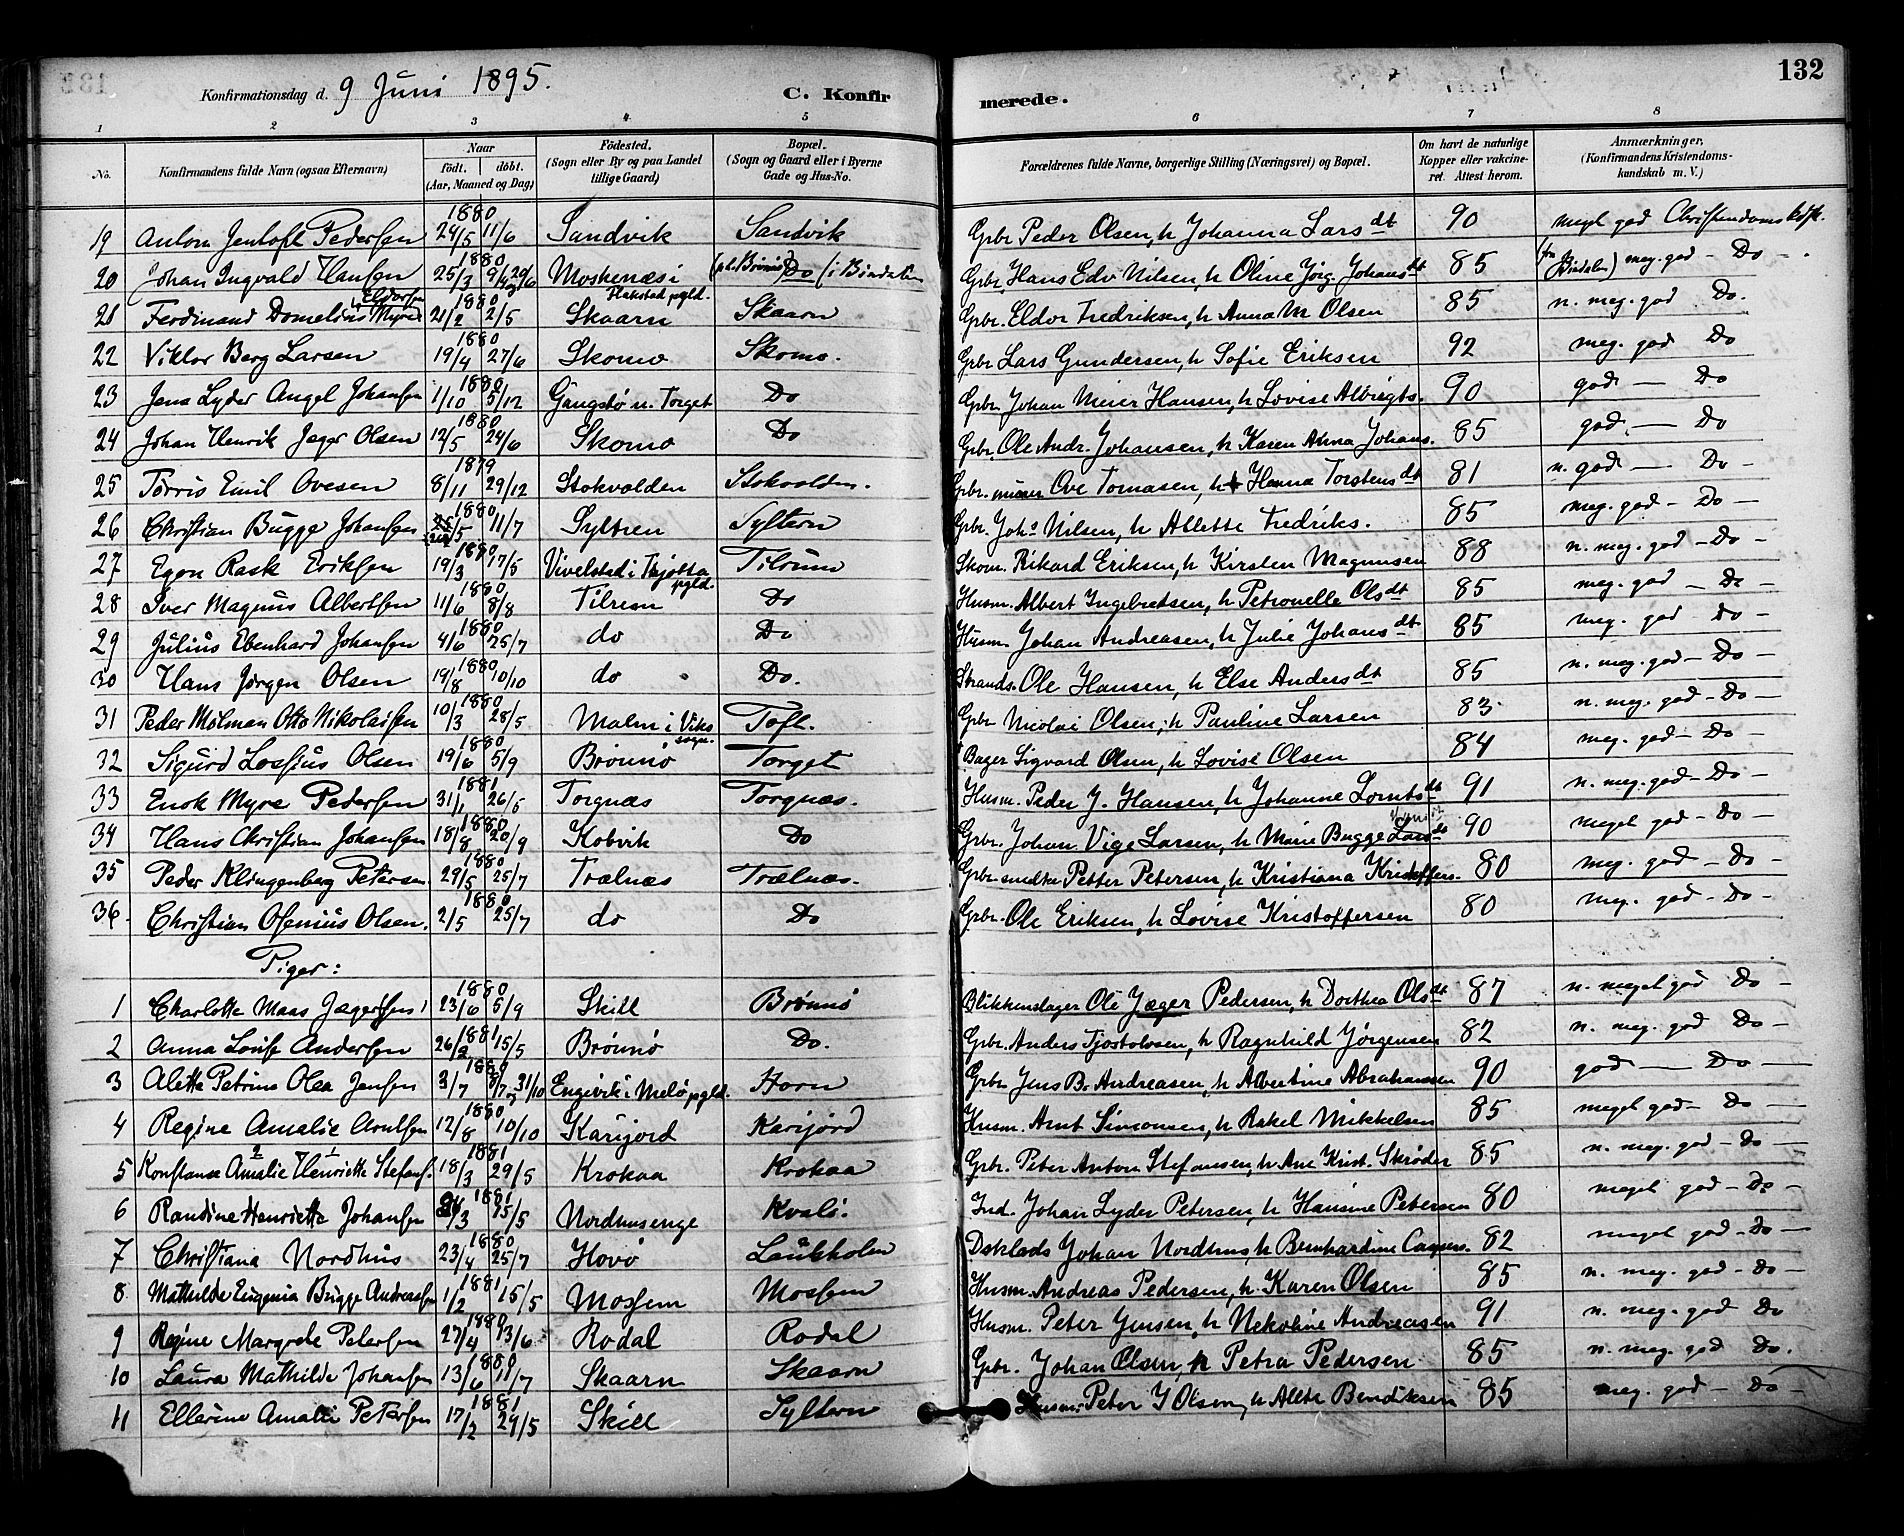 Konfirmationsdag d. 9 Juni 1895. C. Konfirmerede. 132
1 2 3 4 5 6 7 8
No. Konfirmandens fulde Navn (ogsaa Efternavn) Naar født. døbt. (Aar, Maaned og Dag) Fødested. (Sogn eller By og paa Landet tillige Gaard) Bopæl. (Sogn og Gaard eller i Byerne Gade og Hus-No. Forældrenes fulde Navne, borgerlige Stilling (Næringsvei) og Bopæl. Om havt de naturlige Kopper eller vakcineret. Attest herom. Anmærkninger, (Konfirmandens Kristendomskundskab m. V.)
19 Anton Jentoft Pedersen 1880 24/5 11/6 Sandvik Sandvik Grbr Peder Olsen, h Johanna Larsdt 90 meget god Christendomskdsk.
20 Johan Ingvald Hansen 1880 25/3 9/4 og 29/6 Moskenæs i Flakstad pgld. (pt. Brönnö) Do (i Bindalen Grbr. Hans Edv Nilsen, h Oline Jörg. Johansdt 85 (fra Bindalen) meg. god - Do -
21 Ferdinand Domelius Eldorsen Myra 1880 21/2 2/5 Skaarn Skaarn Grbr. Eldor Fredriksen, h Anna M Olsen 85 n. meg. god Do.
22 Viktor Berg Larsen 1880 19/4 27/6 Skomo Skomo. Grbr Lars Gundersen, h Sofie Eriksen 92 meg. god Do
23 Jens Lyder Angel Johansen 1880 1/10 5/12 Gangstö n. Torget Do Grbr. Johan Meier Hansen, h Lovise Albrigts. 90 god - Do
24 Johan Henrik Jæger Olsen 1880 12/5 24/6 Skomo Do Grbr. Ole Andr. Johansen, h Karen Anna Johans. 85 god - Do
25 Torris Emil Ovesen 1879 8/11 29/12 Stokvolden Stokvolden. Grbr. murer Ove Tomasen, h Hanna Torstensdt 81 n. god - Do -
26 Christian Bugge Johansen 1880 /5 11/7 Syltren Syltern Grbr. Johs Nilsen, h Allette Fredriks. 85 meg. god - Do -
27 Egon Rask Eriksen 1880 19/3 17/5 Vivelstad i Tjøtta pgld. Tilrum Skom. Rikard Eriksen, h Kirsten Magnusen 88 n. meg. god - Do -
28 Iver Magnus Albertsen 1880 11/6 8/8 Tilrem Do Husm. Albert Ingebretsen, h Petronelle Olsdt 85 meg. god - Do -
29 Julius Ebenhard Johansen 1880 4/6 25/7 do Do Husm. Johan Andreasen, h Julie Johansdt 85 meg. god - Do -
30 Hans Jørgen Olsen 1880 19/8 10/10 do Do. Strands. Ole Hansen, h Else Andersdt 85 n. meg. god - Do -
31 Peder Molman Otto Nikolaisen 1880 10/3 28/5 Malm i Viks sogn. Toft. Grbr Nicolai Olsen, h Pauline Larsen 83 n. meg. god - Do -
32 Sigurd Lossius Olsen 1880 19/6 5/9 Brönnö Torget Bager Sigvard Olsen, h Lovise Olsen 84 meg. god - Do -
33 Enok Myre Pedersen 1881 31/1 26/5 Torgnæs Torgnæs. Husm. Peder J. Hansen, h Johanne Lorntsdt 91 n. meg. god - Do -
34 Hans Christian Johansen 1880 18/8 20/9 Kobvik Do Grbr. Johan Vige Larsen, h Marie Bugge Larsdt 90 meget god - Do -
35 Peder Klingenberg Petersen 1880 29/5 25/7 Trælnæs Trælnæs. Grbr. smed Petter Petersen, h Kristiana Kristoffers. 80 meg. god - Do -
36. Christian Ofenius Olsen. 1880 2/5 25/7 do Do Grbr. Ole Eriksen, h Lovise Kristoffersen 80 meg. god - Do -
Piger:
1 Charlotte Maas Jægersen 1880 23/6 5/9 Skill Brønnö Blikkenslager Ole Jæger Pedersen, h Dorthea Olsdt 87 n. meget god Do -
2 Anna Lovise Andersen 1881 26/2 15/5 Brönnö Do. Grbr. Anders Tjostolvsen, h Ragnhild Jørgensen 82 n. meg. god Do -
3 Aletta Petrine Olea Jensen 1880 3/7 8/7 og 31/10 Engivik i Melö pgld. Horn Grbr Jens B. Andreasen, h Albertine Abrahamsen 90 god - Do -
4 Regine Amalie Arntsen 1880 12/8 10/10 Karijord Karijörd Husm. Arnt Simonsen, h Rakel Mikkelsen 85 meget god - Do -
5 Konstanse Amalie Henriette Stefans. 1881 18/3 29/5 Krokaa Krokaa Grbr. Peter Anton Stefansen, h Ane Krist. Skrøder 85 n. meg. god - Do -
6 Randine Henriette Johansen 1881 /3 15/5 Nordhusenge Kvalö. Ind. Johan Lyder Petersen, h Hansine Petersen 80 meget god - Do -
7 Christiana Nordhus 1880 23/4 25/7 Hovö Laukholm Johan Nordhus, h Bernhardine Caspers. 82 meget god - Do -
8 Mathilde Eugenia Bugge Andreassen 1881 1/2 15/5 Mossem Mossem Husm. Andreas Pedersen, h Karen Olsen 85 n. meg. god - Do -
9 Regine Margrete Petersen 1880 27/4 13/6 Rodal Rodal Husm. Peter Jensen, h Nekoline Andreasen 91 n. meg. god Do
10 Laura Mathilde Johansen 1880 13/6 11/7 Skaarn Skaarn Grbr. Johan Olsen, h Petra Pedersen 85 n. meg. god Do.
11 Ellerine Amalie Petersen 1881 17/2 24/5 Skill Syltern Husm. Peter J Olsen, h Allete Bendiksen 85 meg. god - Do -